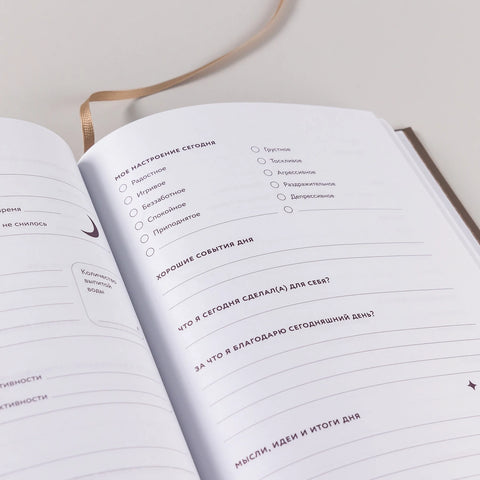 не снилось
Количество
выпитой
воды
МОЕ НАСТРОЕНИЕ СЕГОДНЯ
Радостное
Игривое
Беззаботное
Спокойное
Приподнятое
Грустное
Тоскливое
Агрессивное
Раздражительное
Депрессивное
ХОРОШИЕ СОБЫТИЯ ДНЯ
ЧТО Я СЕГОДНЯ СДЕЛАЛ(А) ДЛЯ СЕБЯ?
ЗА ЧТО Я БЛАГОДАРЮ СЕГОДНЯШНИЙ ДЕНЬ?
МЫСЛИ, ИДЕИ И ИТОГИ ДНЯ